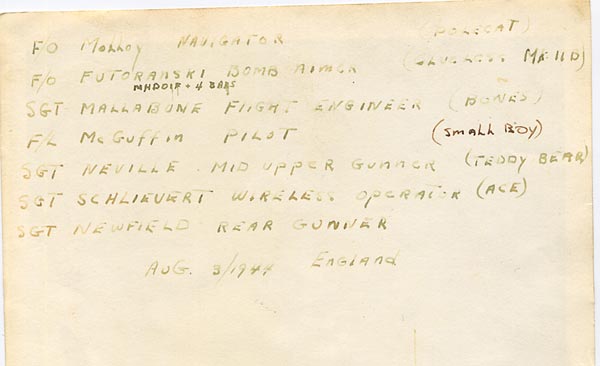 F/O Molloy NAVIGATOR (POLECAT)
F/O FUTORANSKI BOMB AIMER (CLUELESS MK IID)
MHDOIF + 4 BARS
SGT MALLABONE FLIGHT ENGINEER (BONES)
F/L McGuffin PILOT (SMALL BOY)
SGT NEVILLE. MID UPPER GUNNER (TEDDY BEAR)
SGT SCHLIEVERT WIRELESS OPERATOR (ACE)
SGT NEWFIELD REAR GUNNER
AUG. 3/1944 ENGLAND